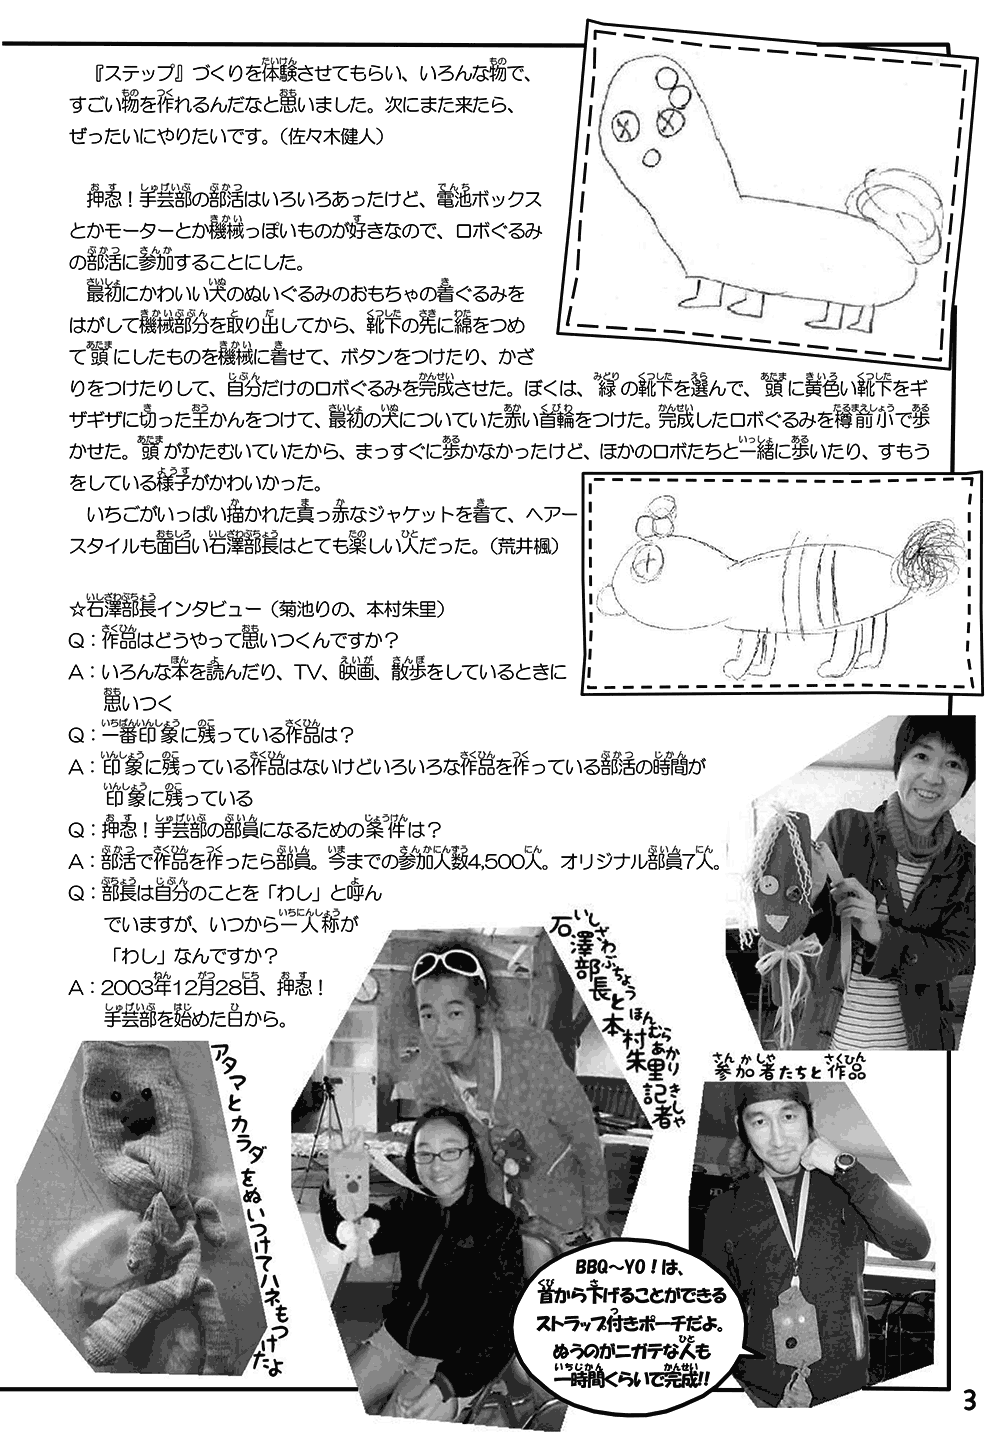 『ステップ』づくりを体験させてもらい、いろんな物で、
すごい物を作れるんだなと思いました。次にまた来たら、
ぜったいにやりたいです。（佐々木健人）
押忍！手芸部の部活はいろいろあったけど、電池ボックス
とかモーターとか機械っぽいものが好きなので、ロボぐるみ
の部活に参加することにした。
最初にかわいい犬のぬいぐるみのおもちゃの着ぐるみを
はがして機械部分を取り出してから、靴下の先に綿をつめ
て頭にしたものを機械に着せて、ボタンをつけたり、かざ
りをつけたりして、自分だけのロボぐるみを完成させた。ぼくは、緑の靴下を選んで、頭に黄色い靴下をギ
ザギザに切った王かんをつけて、最初の犬についていた赤い首輪をつけた。完成したロボぐるみを樽前小で歩
かせた。頭がかたむいていたから、まっすぐに歩かなかったけど、ほかのロボたちと一緒に歩いたり、すもう
をしている様子がかわいかった。
いちごがいっぱい描かれた真っ赤なジャケットを着て、ヘアー
スタイルも面白い石澤部長はとても楽しい人だった。（荒井楓）
☆石澤部長インタビュー（菊池りの、本村朱里）
Q：作品はどうやって思いつくんですか？
A：いろんな本を読んだり、TV、映画、散歩をしているときに
思いつく
Q：一番印象に残っている作品は？
A：印象に残っている作品はないけどいろいろな作品を作っている部活の時間が
印象に残っている
Q：押忍！手芸部の部員になるための条件は？
A：部活で作品を作ったら部員。今までの参加人数4,500人。オリジナル部員7人。
Q：部長は自分のことを「わし」と呼ん
でいますが、いつから一人称が
「わし」なんですか？
A：2003年12月28日、押忍！
手芸部を始めた日から。
アタマとカラダをぬいつけてハネもつけたよ
石澤部長と本村朱里記者
参加者たちと作品
BBQ～YO！は、
首から下げることができる
ストラップ付きポーチだよ。
ぬうのがニガテな人も
一時間くらいで完成!!
3